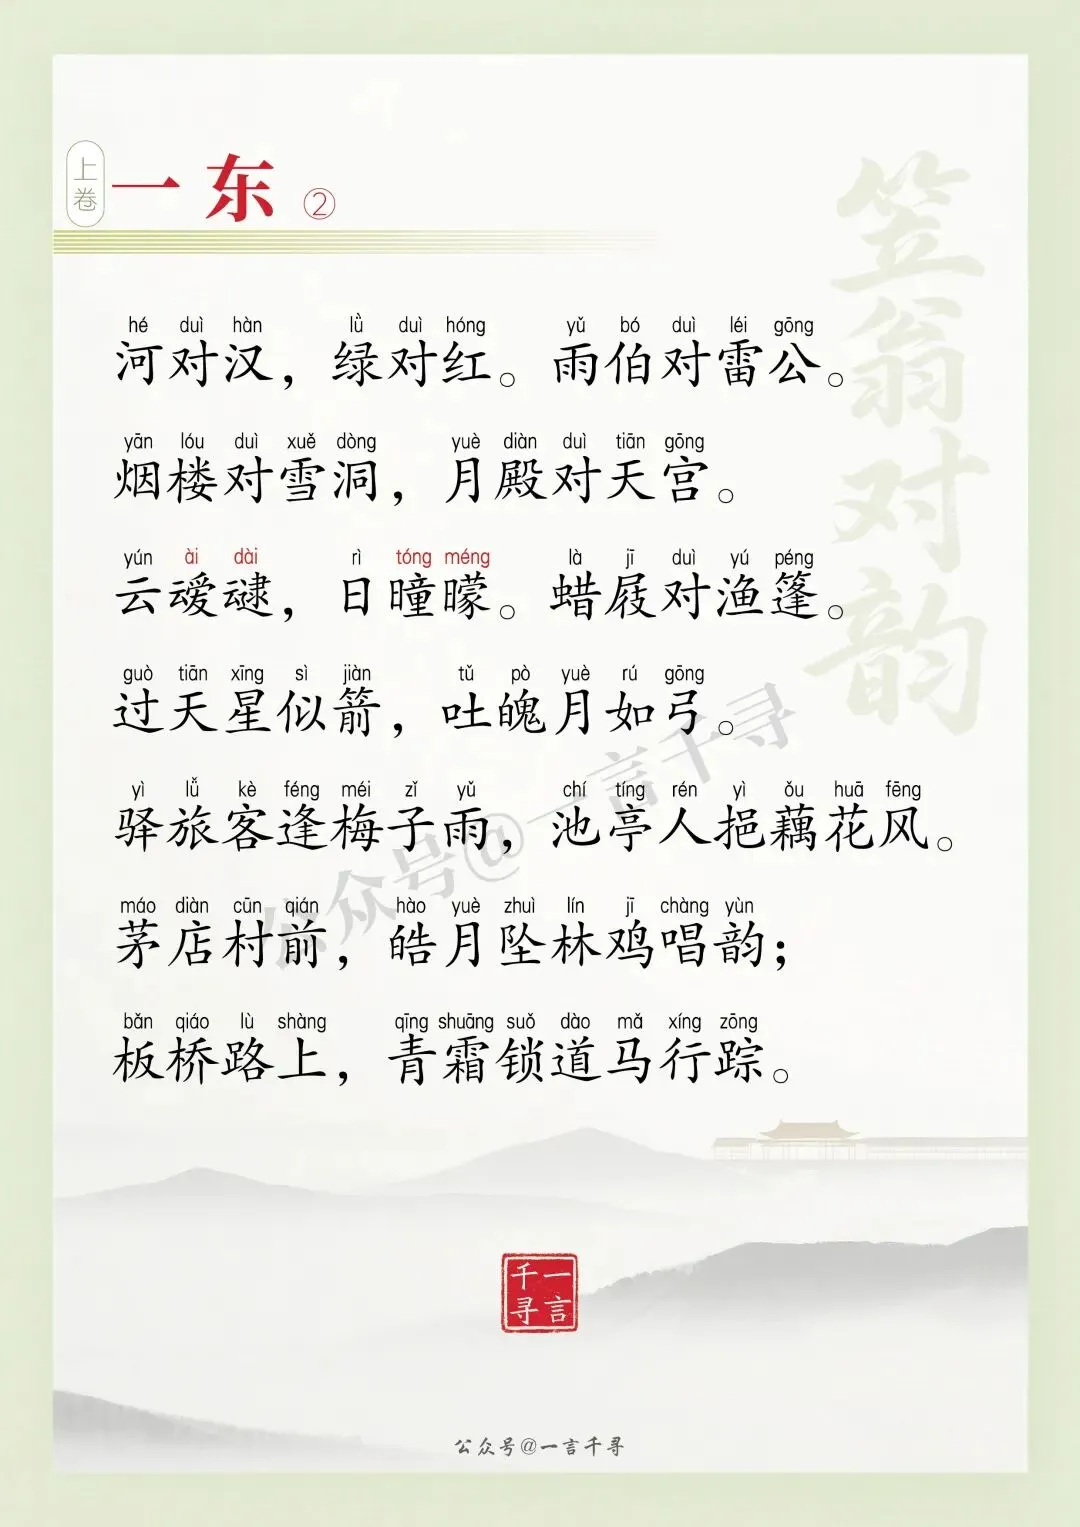 上卷
一东②
笠翁对韵
hé duì hàn lǜ duì hóng yǔ bó duì léi gōng
河对汉，绿对红。雨伯对雷公。
yān lóu duì xuě dòng yuè diàn duì tiān gōng
烟楼对雪洞，月殿对天宫。
yún ài dài rì tóng méng là jī duì yú péng
云叆叇，日曈曚。蜡屐对渔篷。
guò tiān xīng sì jiàn tǔ pò yuè rú gōng
过天星似箭，吐魄月如弓。
yì lǚ kè féng méi zǐ yǔ chí tíng rén yì ǒu huā fēng
驿旅客逢梅子雨，池亭人挹藕花风。
máo diàn cūn qián hào yuè zhuì lín jī chàng yùn
茅店村前，皓月坠林鸡唱韵；
bǎn qiáo lù shàng qīng shuāng suǒ dào mǎ xíng zōng
板桥路上，青霜锁道马行踪。
公众号@一言千寻
一言千寻
公众号@一言千寻